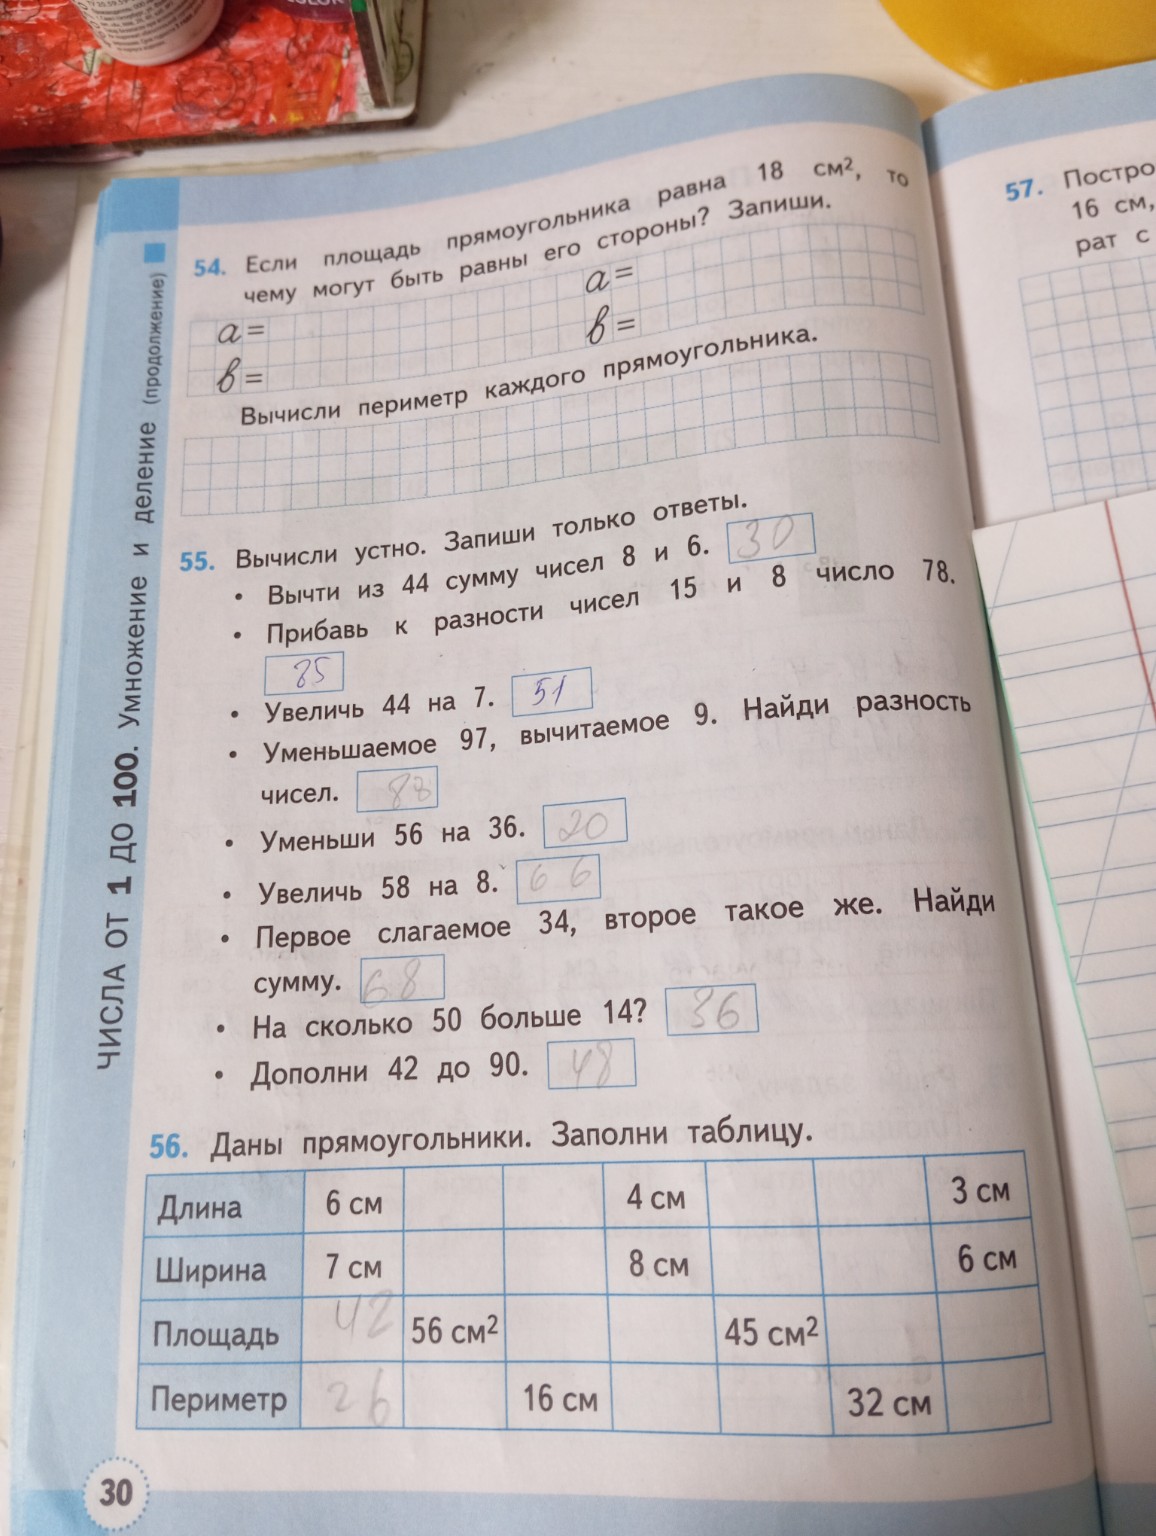 ЧИСЛА ОТ 1 ДО 100. Умножение и деление (продолжение)
54. Если площадь прямоугольника равна 18 см², то
чему могут быть равны его стороны? Запиши.
a = a =
b = b =
Вычисли периметр каждого прямоугольника.
55. Вычисли устно. Запиши только ответы.
• Вычти из 44 сумму чисел 8 и 6. 30
• Прибавь к разности чисел 15 и 8 число 78.
85
• Увеличь 44 на 7. 51
• Уменьшаемое 97, вычитаемое 9. Найди разность
чисел. 88
• Уменьши 56 на 36. 20
• Увеличь 58 на 8. 66
• Первое слагаемое 34, второе такое же. Найди
сумму. 68
• На сколько 50 больше 14? 36
• Дополни 42 до 90. 48
56. Даны прямоугольники. Заполни таблицу.
Длина 6 см 4 см 3 см
Ширина 7 см 8 см 6 см
Площадь 42 56 см² 45 см²
Периметр 26 16 см 32 см
30
57. Постро
16 см,
рат с